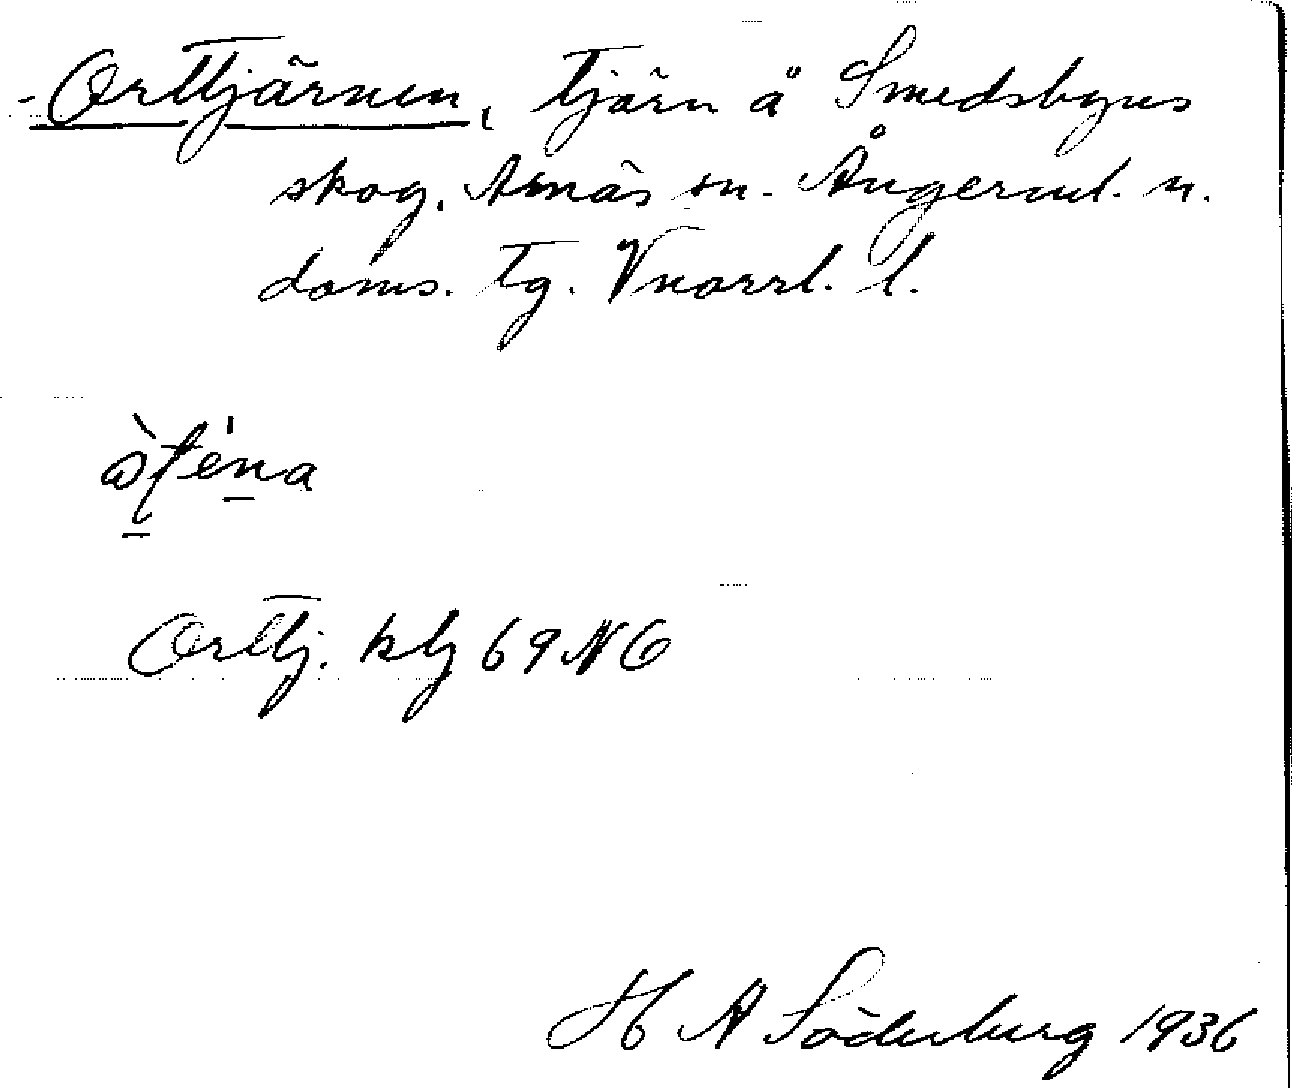 - Orttjärnen, tjärn å Smedsbyns
skog, Arnäs sn. Ångerml. n.
doms. tg. Vnorrl. l.
Orttj. kbg 69 NO
H A Söderberg 1936